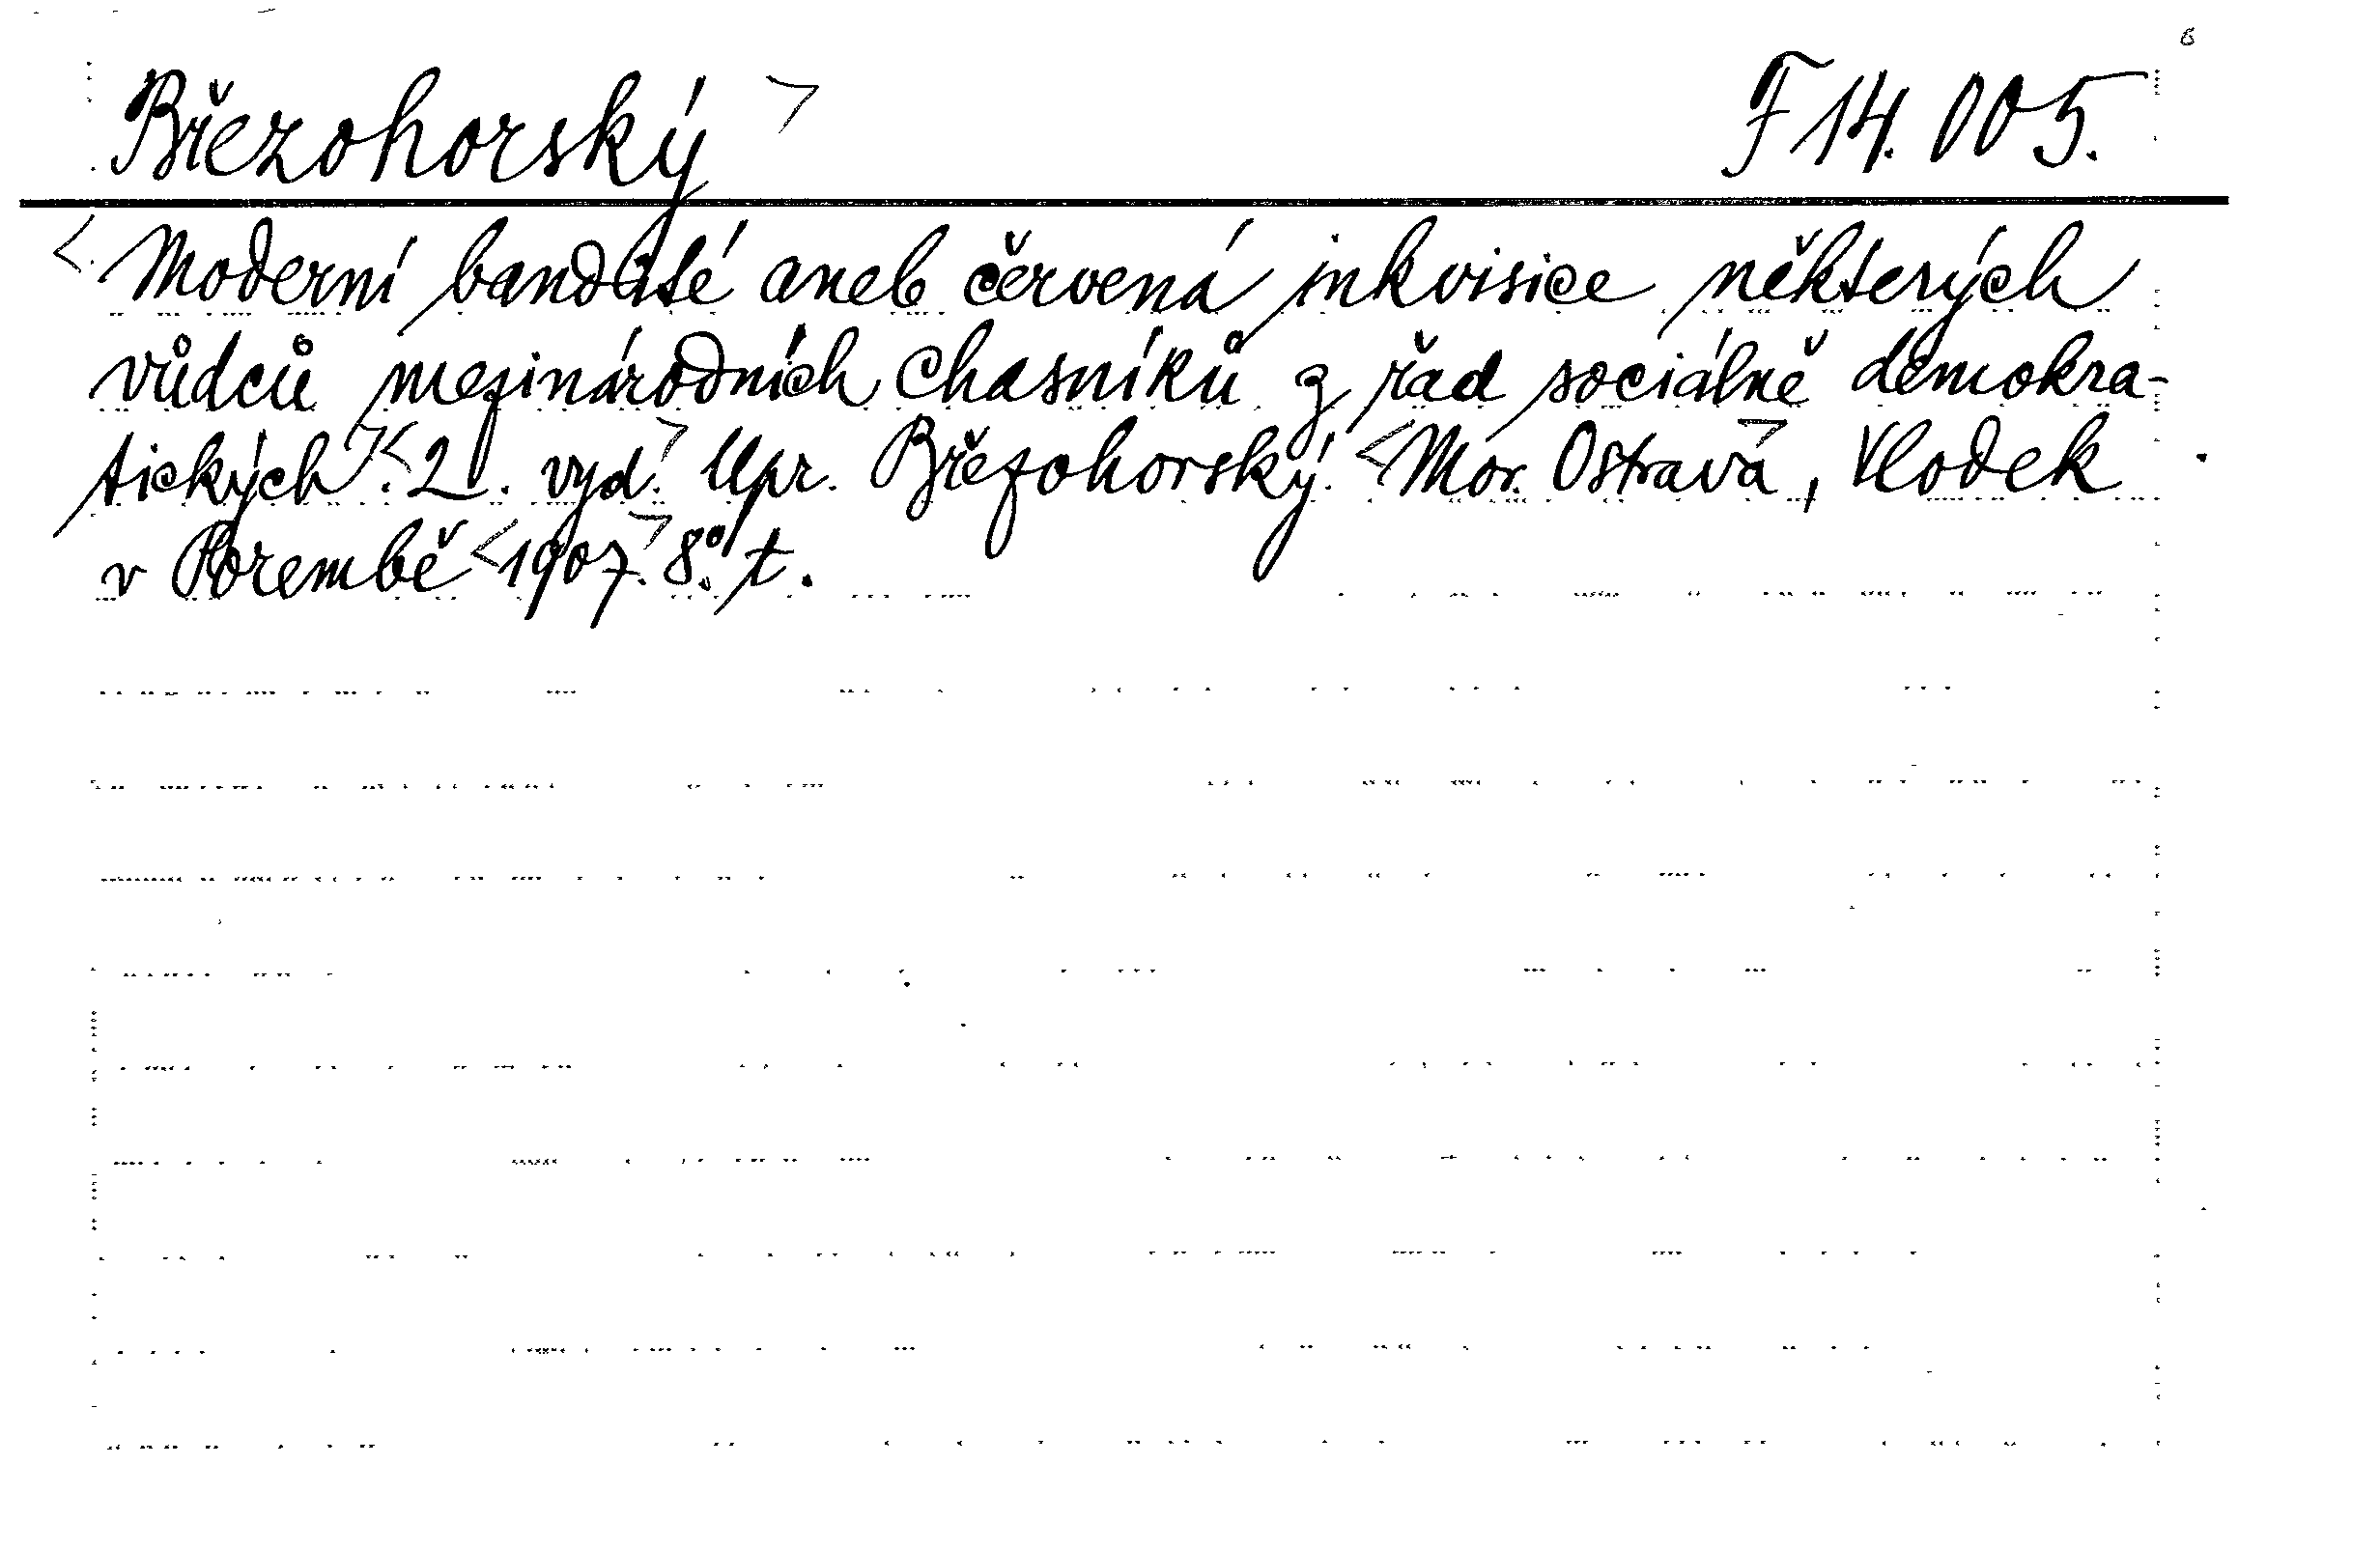 Březohorský F 14.005.
Moderní bandité aneb červená inkvisice některých
vůdců mezinárodních chasníků z řad sociálně demokra-
tických. 2. vyd. Upr. Březohorský. Mor. Ostrava, Vlodek
v Porembě 1907. 8°. t.